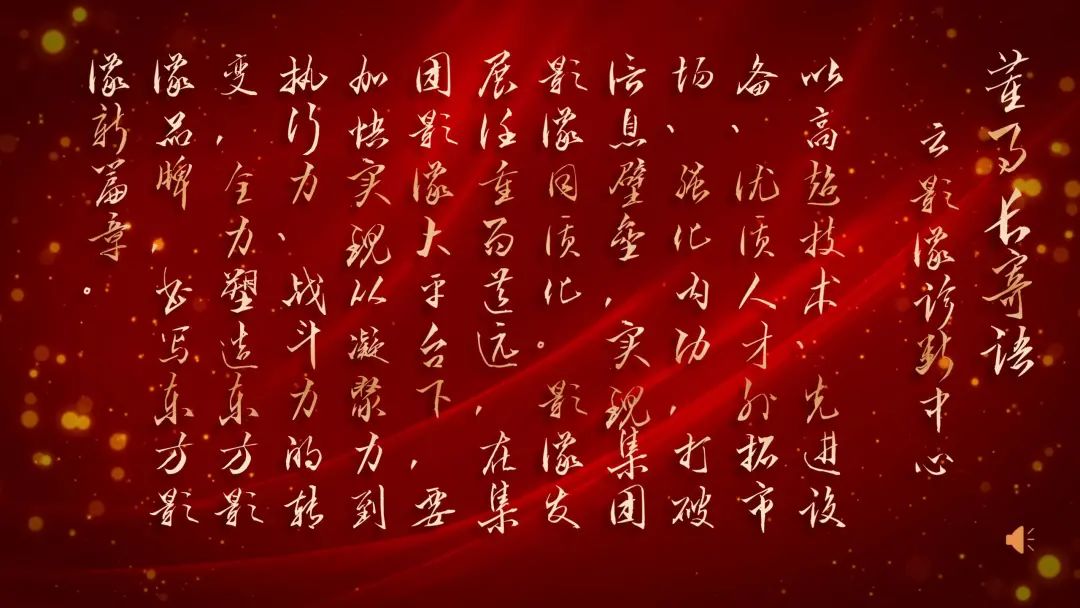 董事长寄语
云影像诊断中心
以高超技术、先进设
备、优质人才外拓市
场、强化内功，打破
信息壁垒，实现集团
影像同质化。影像发
展任重而道远，在集
团影像大平台下，要
加快实现从凝聚力到
执行力、战斗力的转
变，全力塑造东方影
像品牌，书写东方影
像新篇章。